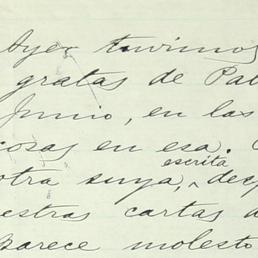 Ayer tuvimos
gratas de Pal
Junio, en las
cosas en esa.
escrita
otra suya, ^ desp
estras cartas d
parece molesto